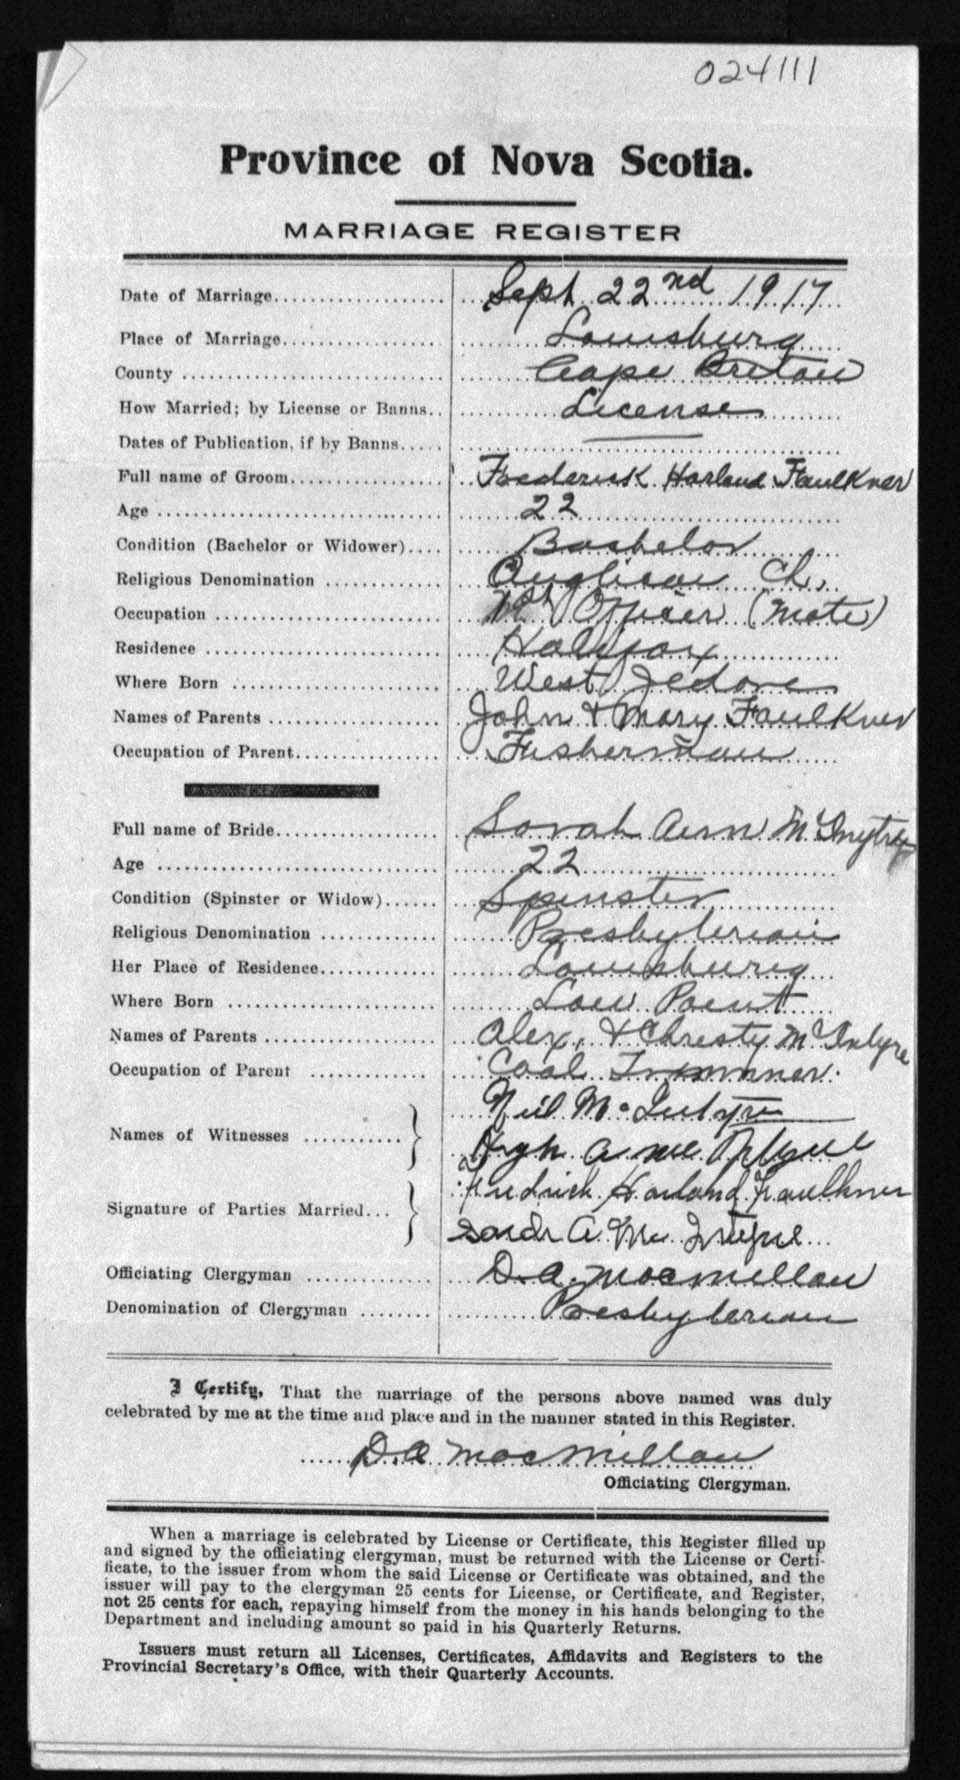 024111
Province of Nova Scotia.
MARRIAGE REGISTER
Date of Marriage.................... Sept 22nd 1917
Place of Marriage.................. Louisburg
County .............................. Cape Breton
How Married; by License or Banns.. License
Dates of Publication, if by Banns.....
Full name of Groom................. Frederick Harland Faulkner
Age ................................. 22
Condition (Bachelor or Widower).... Bachelor
Religious Denomination ............. Anglican Ch.
Occupation .......................... 1st Officer (Mate)
Residence ........................... Halifax
Where Born ........................ West Jedore
Names of Parents .................... John & Mary Faulkner
Occupation of Parent................. Fisherman
Full name of Bride................... Sarah Ann
Age ................................. 22
Condition (Spinster or Widow)...... Spinster
Religious Denomination .............. Presbyterian
Her Place of Residence.............. Louisburg
Where Born ......................... Low Point
Names of Parents .................... Alex, & Christy McIntyre
Occupation of Parent ............... Coal Trimmer.
Names of Witnesses ............ } Neil McIntyre
Hugh A Mc
Signature of Parties Married... } Fredrick Harland Faulkner
Sarah A. Mc
Officiating Clergyman .............. D. A. MacMillan
Denomination of Clergyman ........ Presbyterian
I Certify, That the marriage of the persons above named was duly
celebrated by me at the time and place and in the manner stated in this Register.
D. A MacMillan
Officiating Clergyman.
When a marriage is celebrated by License or Certificate, this Register filled up
and signed by the officiating clergyman, must be returned with the License or Certi-
ficate, to the issuer from whom the said License or Certificate was obtained, and the
issuer will pay to the clergyman 25 cents for License, or Certificate, and Register,
not 25 cents for each, repaying himself from the money in his hands belonging to the
Department and including amount so paid in his Quarterly Returns.
Issuers must return all Licenses, Certificates, Affidavits and Registers to the
Provincial Secretary's Office, with their Quarterly Accounts.